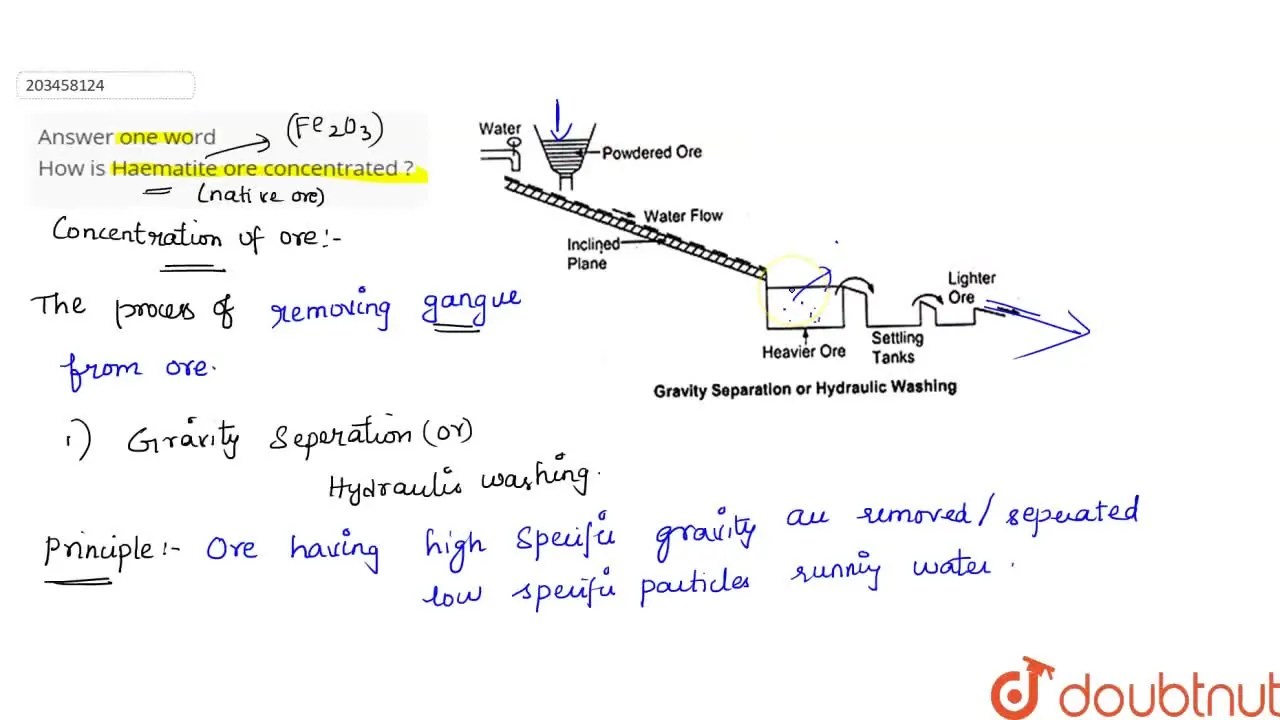 203458124
Answer one word
(Fe2O3)
How is Haematite ore concentrated ?
(native ore)
Concentration of ore:-
The process of removing gangue
from ore.
1) Gravity Seperation (or)
Hydraulic washing.
Principle:- Ore having high Specific gravity are removed/seperated
low specific particles running water.
Water
Powdered Ore
Water Flow
Inclined
Plane
Lighter
Ore
Heavier Ore
Settling
Tanks
Gravity Separation or Hydraulic Washing
doubtnut